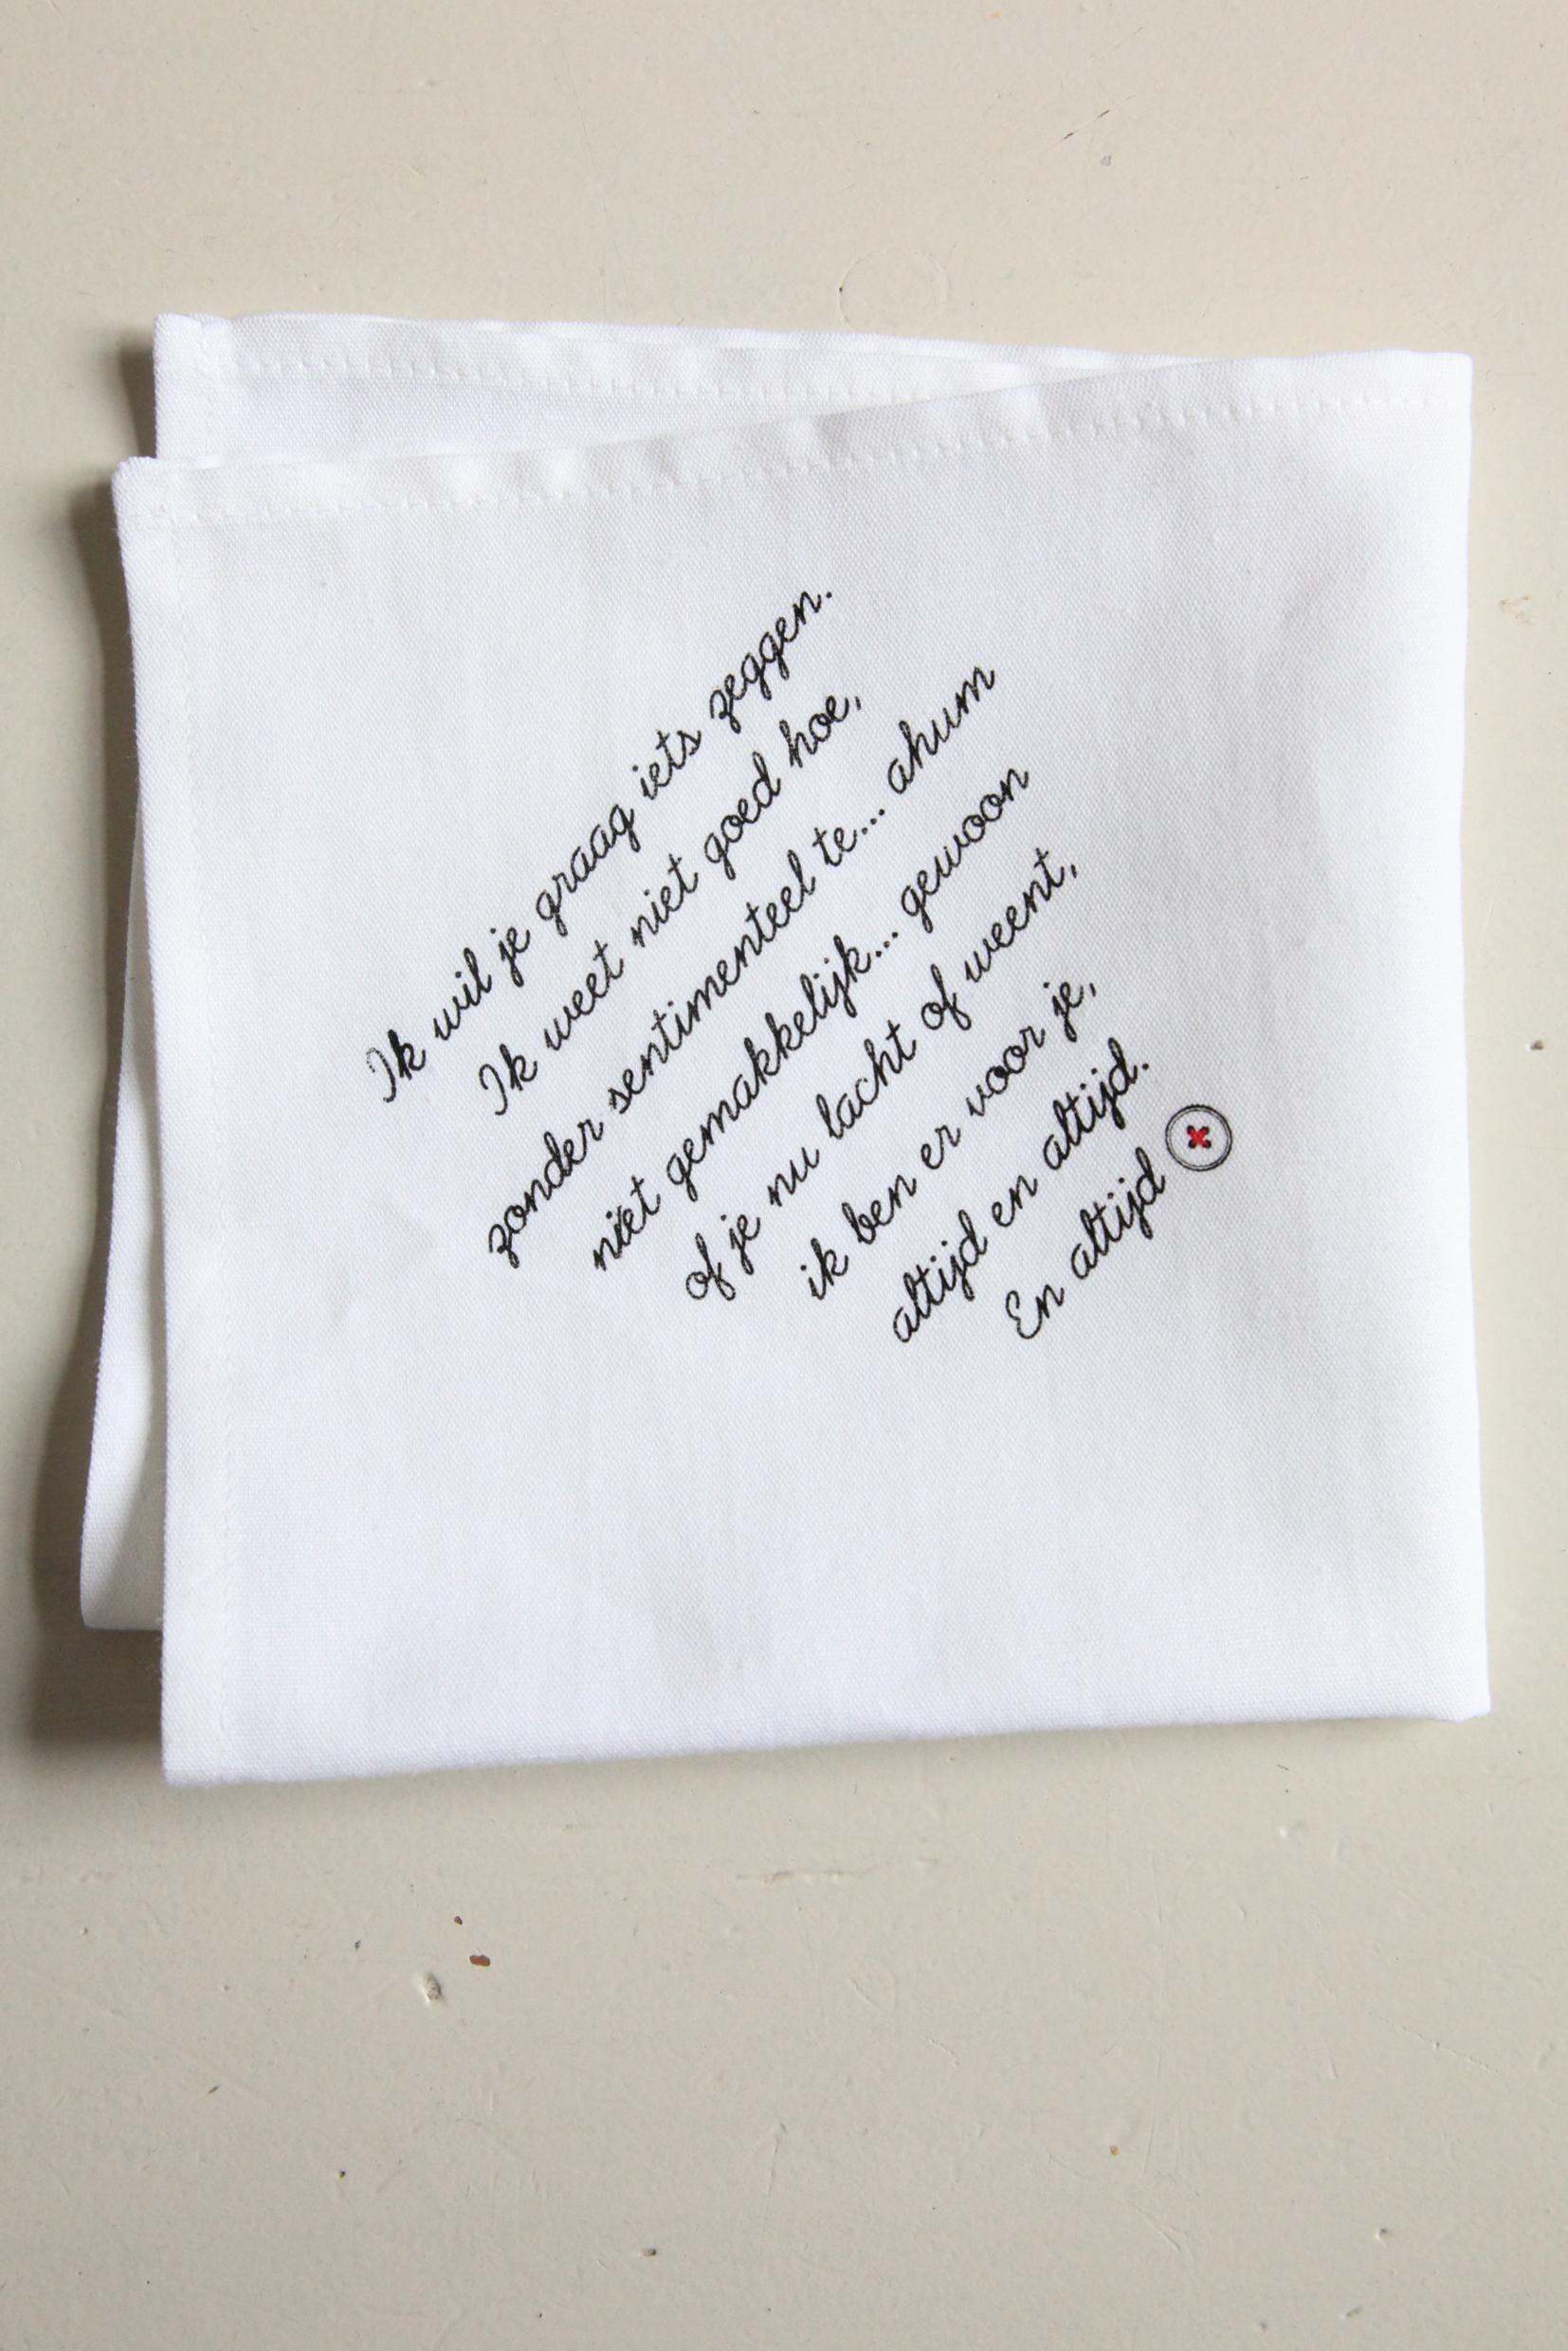 Ik wil je graag iets zeggen.
Ik weet niet goed hoe,
zonder sentimenteel te... ahum
niet gemakkelijk... gewoon
of je nu lacht of weent,
ik ben er voor je,
altijd en altijd.
En altijd